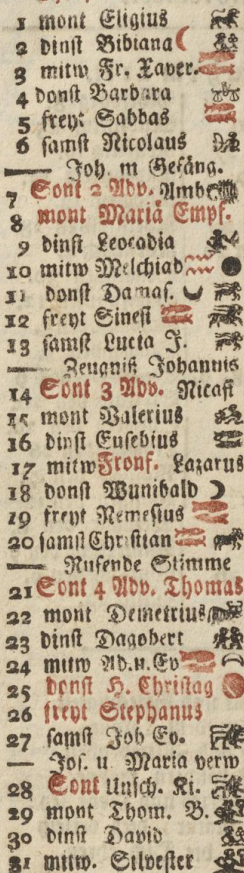 1 mont Eligius
2 dinst Bibiana
3 mitw Fr. Xaver.
4 donst Barbara
5 freyt Sabbas
6 samst Nicolaus
Joh. m Gefäng.
7 Sont 2 Adv. Ambr
8 mont Mariä Empf.
9 dinst Leocadia
10 mitw Melchiad
11 donst Damas.
12 freyt Sinesi
13 samst Lucia J.
Zeugniß Johannis
14 Sont 3 Adv. Nicasi
15 mont Valerius
16 dinst Eusebius
17 mitw Fronf. Lazarus
18 donst Wunibald
19 freyt Nemesius
20 samst Christian
Rufende Stimme
21 Sont 4 Adv. Thomas
22 mont Demetrius
23 dinst Dagobert
24 mitw Ad.u.Ev
25 donst H. Christag
26 freyt Stephanus
27 samst Joh Ev.
Jos. u. Maria verw
28 Sont Unsch. Ki.
29 mont Thom. B.
30 dinst David
31 mitw. Silvester